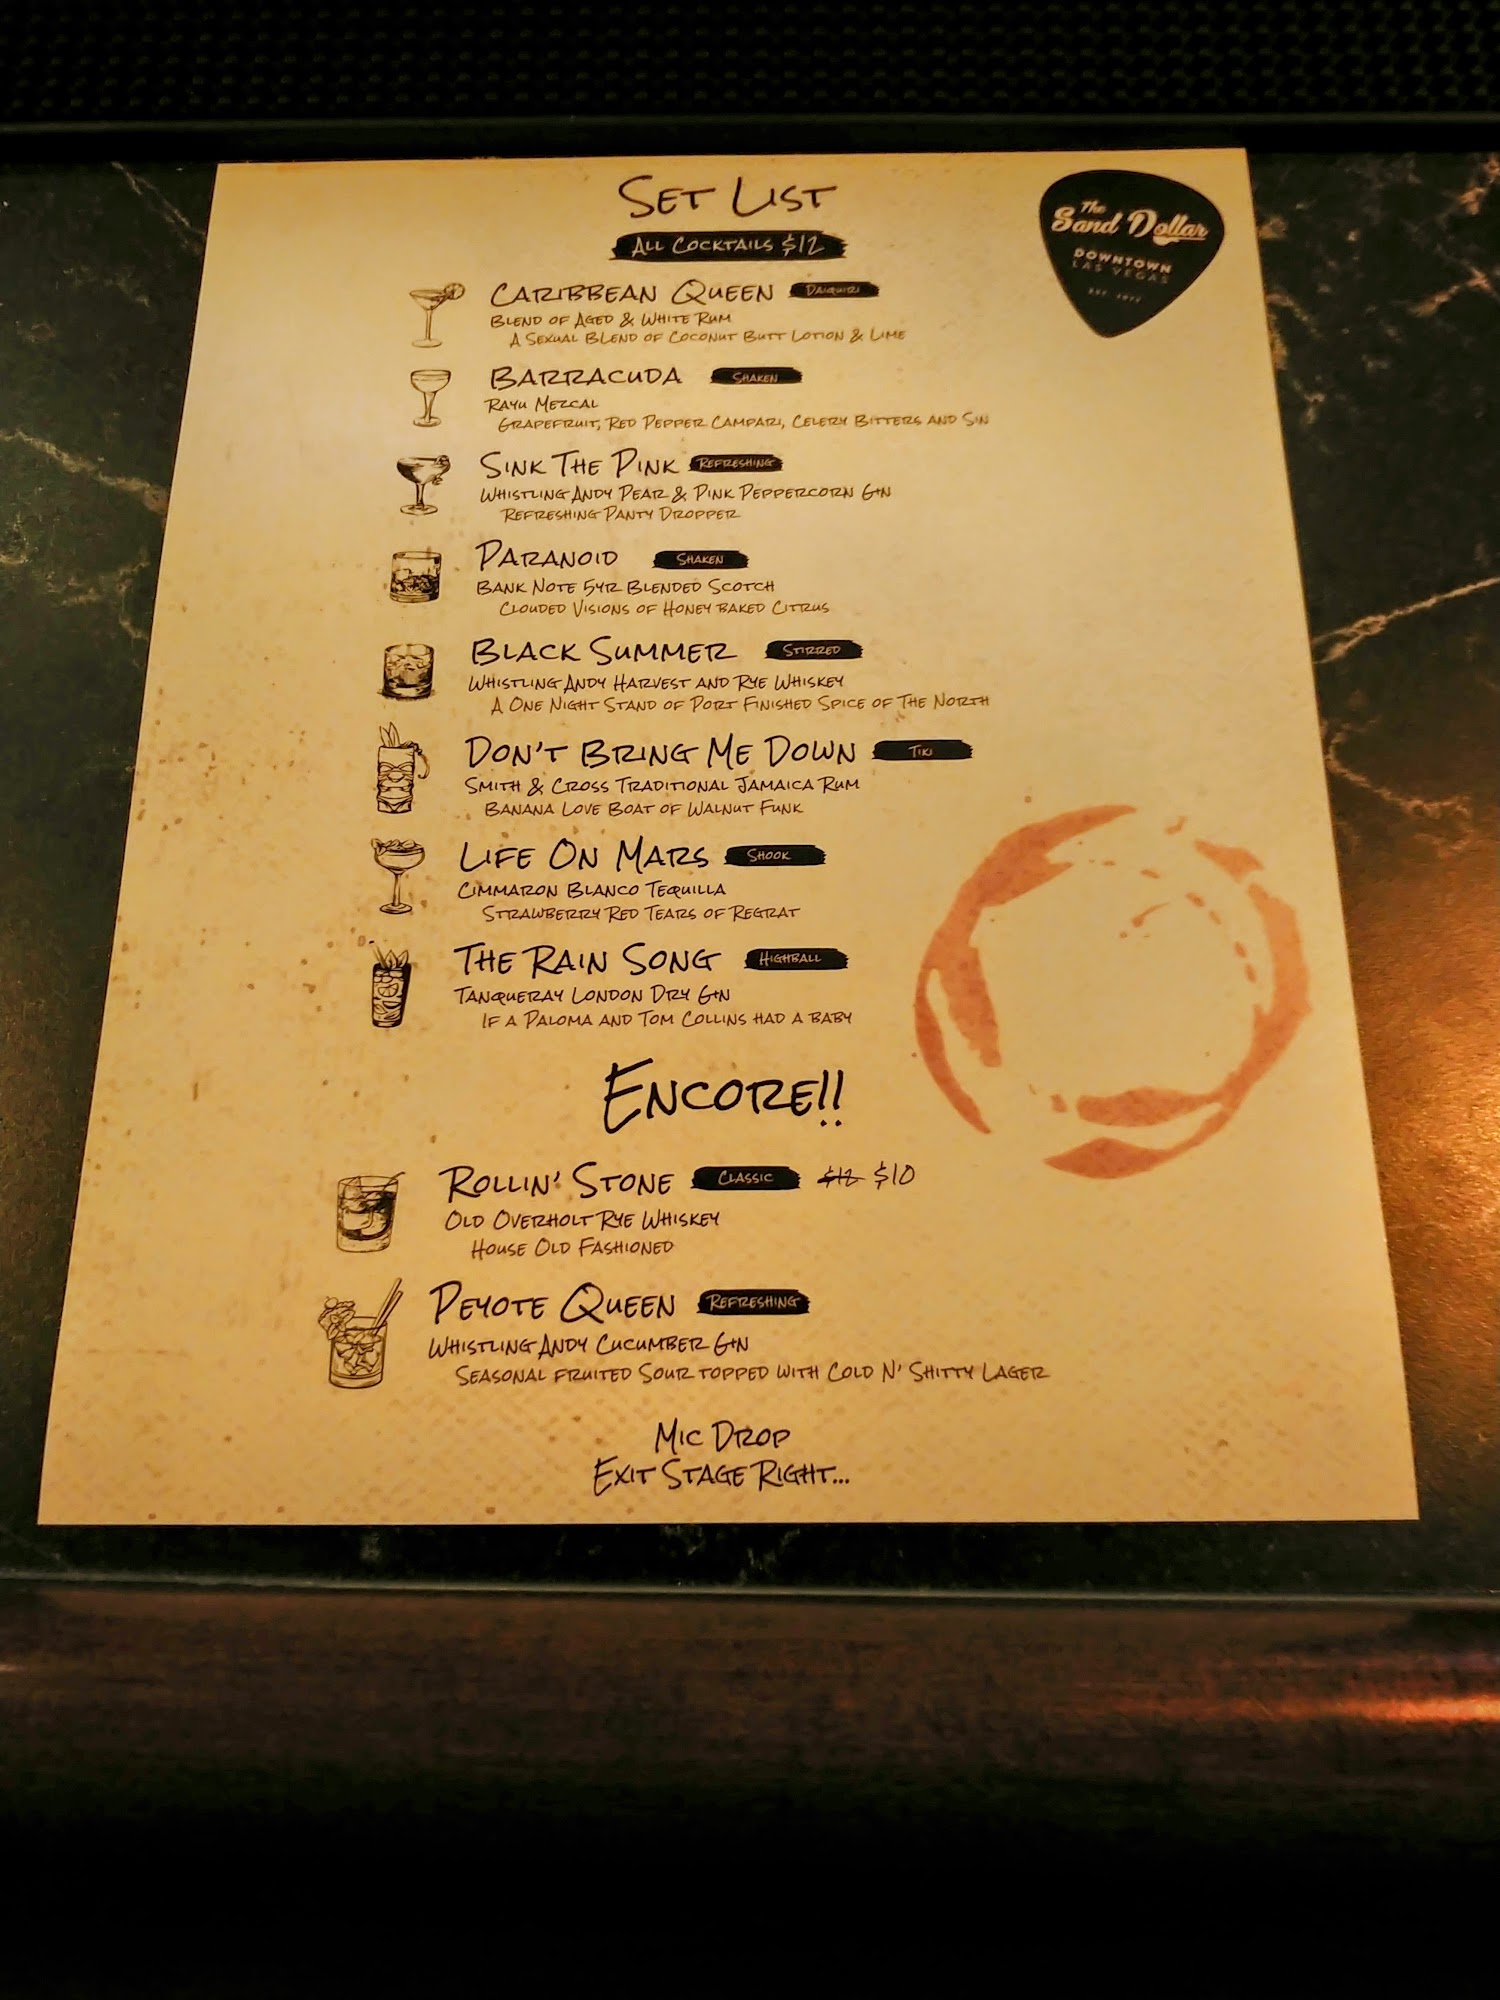 Set List
The
Sand Dollar
Downtown
Las Vegas
All Cocktails $12
Caribbean Queen Daiquiri
Blend of Aged & White Rum
A Sexual Blend of Coconut Butt Lotion & Lime
Barracuda Shaken
Rayu Mezcal
Grapefruit, Red Pepper Campari, Celery Bitters and Sin
Sink The Pink Refreshing
Whistling Andy Pear & Pink Peppercorn Gin
Refreshing Panty Dropper
Paranoid Shaken
Bank Note 5yr Blended Scotch
Clouded Visions of Honey baked Citrus
Black Summer Stirred
Whistling Andy Harvest and Rye Whiskey
A One Night Stand of Port Finished Spice of The North
Don't Bring Me Down Tiki
Smith & Cross Traditional Jamaica Rum
Banana Love Boat of Walnut Funk
Life On Mars Shook
Cimmaron Blanco Tequilla
Strawberry Red Tears of Regrat
The Rain Song Highball
Tanqueray London Dry Gin
If a Paloma and Tom Collins had a baby
Encore!!
Rollin' Stone Classic $12 $10
Old Overholt Rye Whiskey
House Old Fashioned
Peyote Queen Refreshing
Whistling Andy Cucumber Gin
Seasonal fruited Sour topped with Cold N' Shitty Lager
Mic Drop
Exit Stage Right...